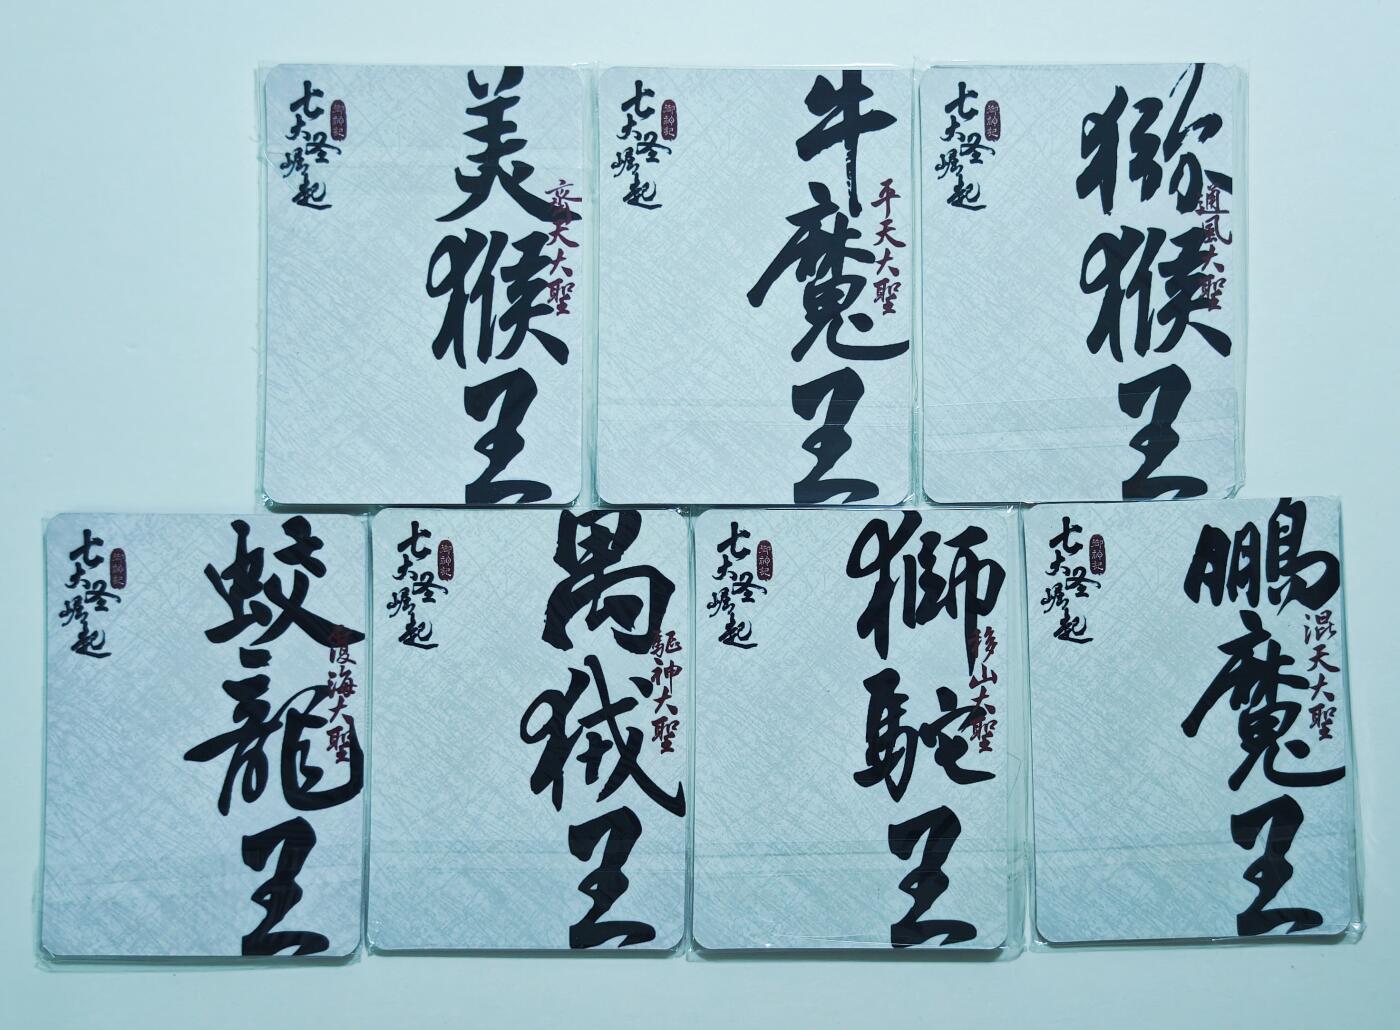 七大圣崛起
御神記
美猴王
齊天大聖
七大圣崛起
御神記
牛魔王
平天大聖
七大圣崛起
御神記
獼猴王
通風大聖
七大圣崛起
御神記
蛟龍王
覆海大聖
七大圣崛起
御神記
禺狨王
驅神大聖
七大圣崛起
御神記
獅駝王
移山大聖
七大圣崛起
御神記
鵬魔王
混天大聖